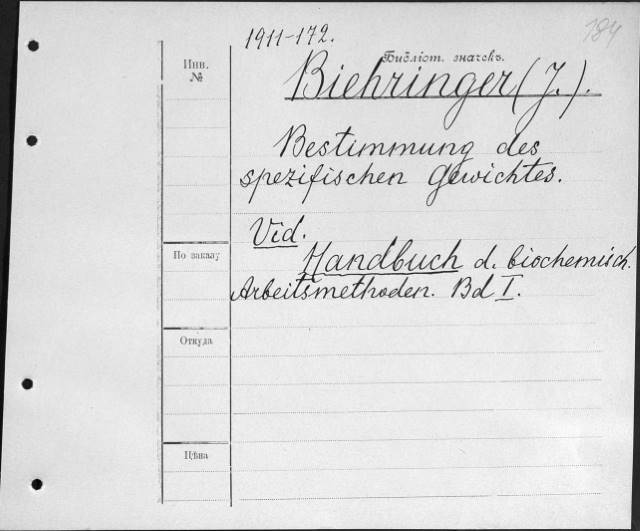 1911-172.
184
Инв.
№
Библіот. значекъ.
Biehringer (J.).
Bestimmung des
spezifischen Gewichtes.
Vid.
По заказу
Handbuch d. biochemisch.
Arbeitsmethoden. Bd I.
Откуда
Цѣна